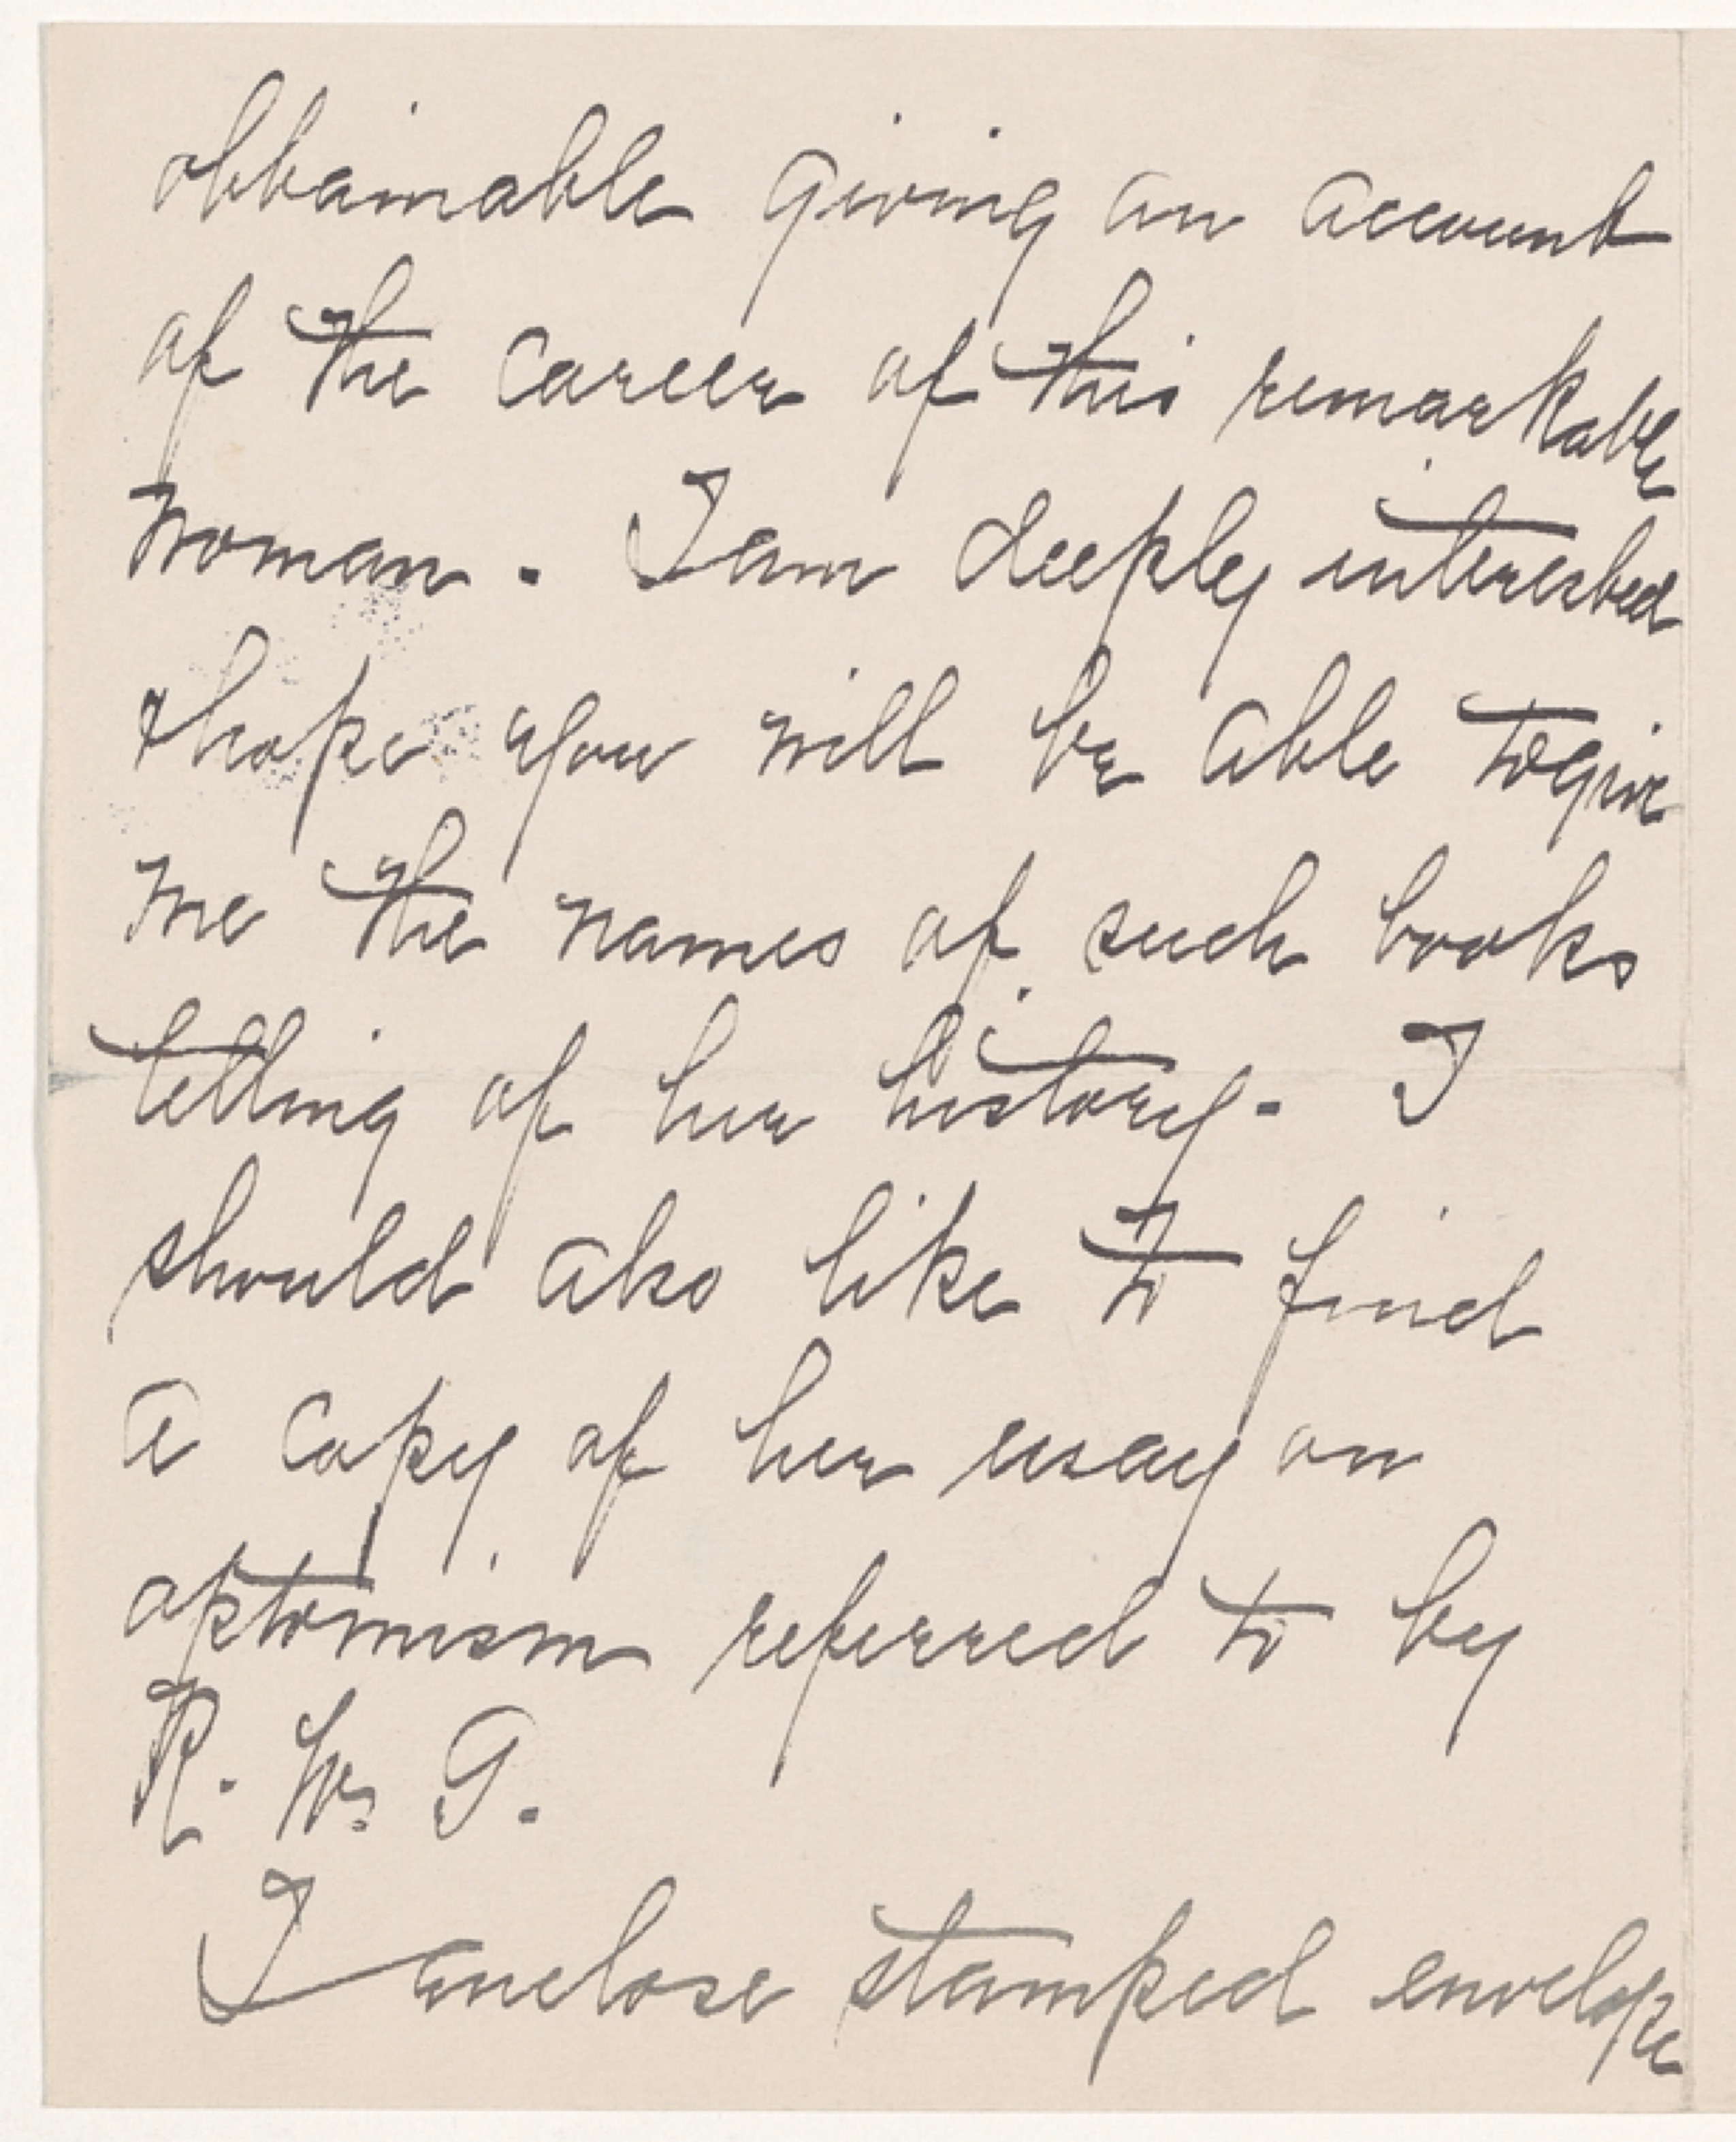 obtainable giving an account
of the career of this remarkable
woman. I am deeply interested
& hope you will be able to give
me the names of such books
telling of her history. I
should also like to find
a copy of her essay on
optomism referred to by
R. W. G.
I enclose stamped envelope